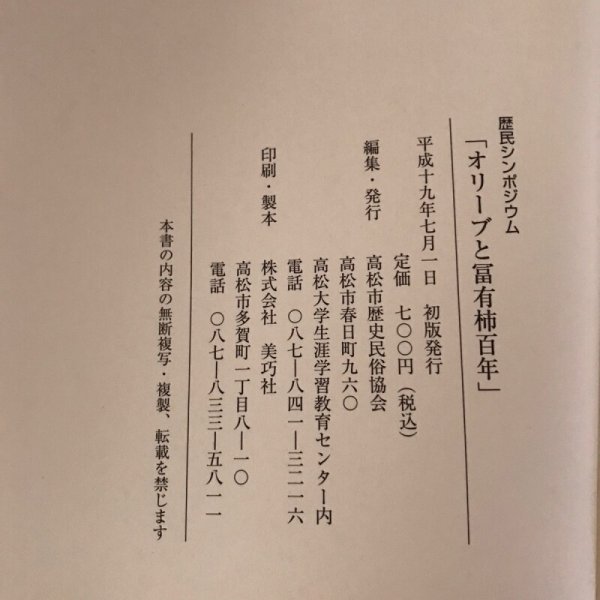 歴民シンポジウム
「オリーブと冨有柿百年」
平成十九年七月一日　初版発行
定価　七〇〇円（税込）
編集・発行　高松市歴史民俗協会
高松市春日町九六〇
高松大学生涯学習教育センター内
電話　〇八七―八四一―三二一六
印刷・製本　株式会社　美巧社
高松市多賀町一丁目八―一〇
電話　〇八七―八三三―五八一一
本書の内容の無断複写・複製、転載を禁じます